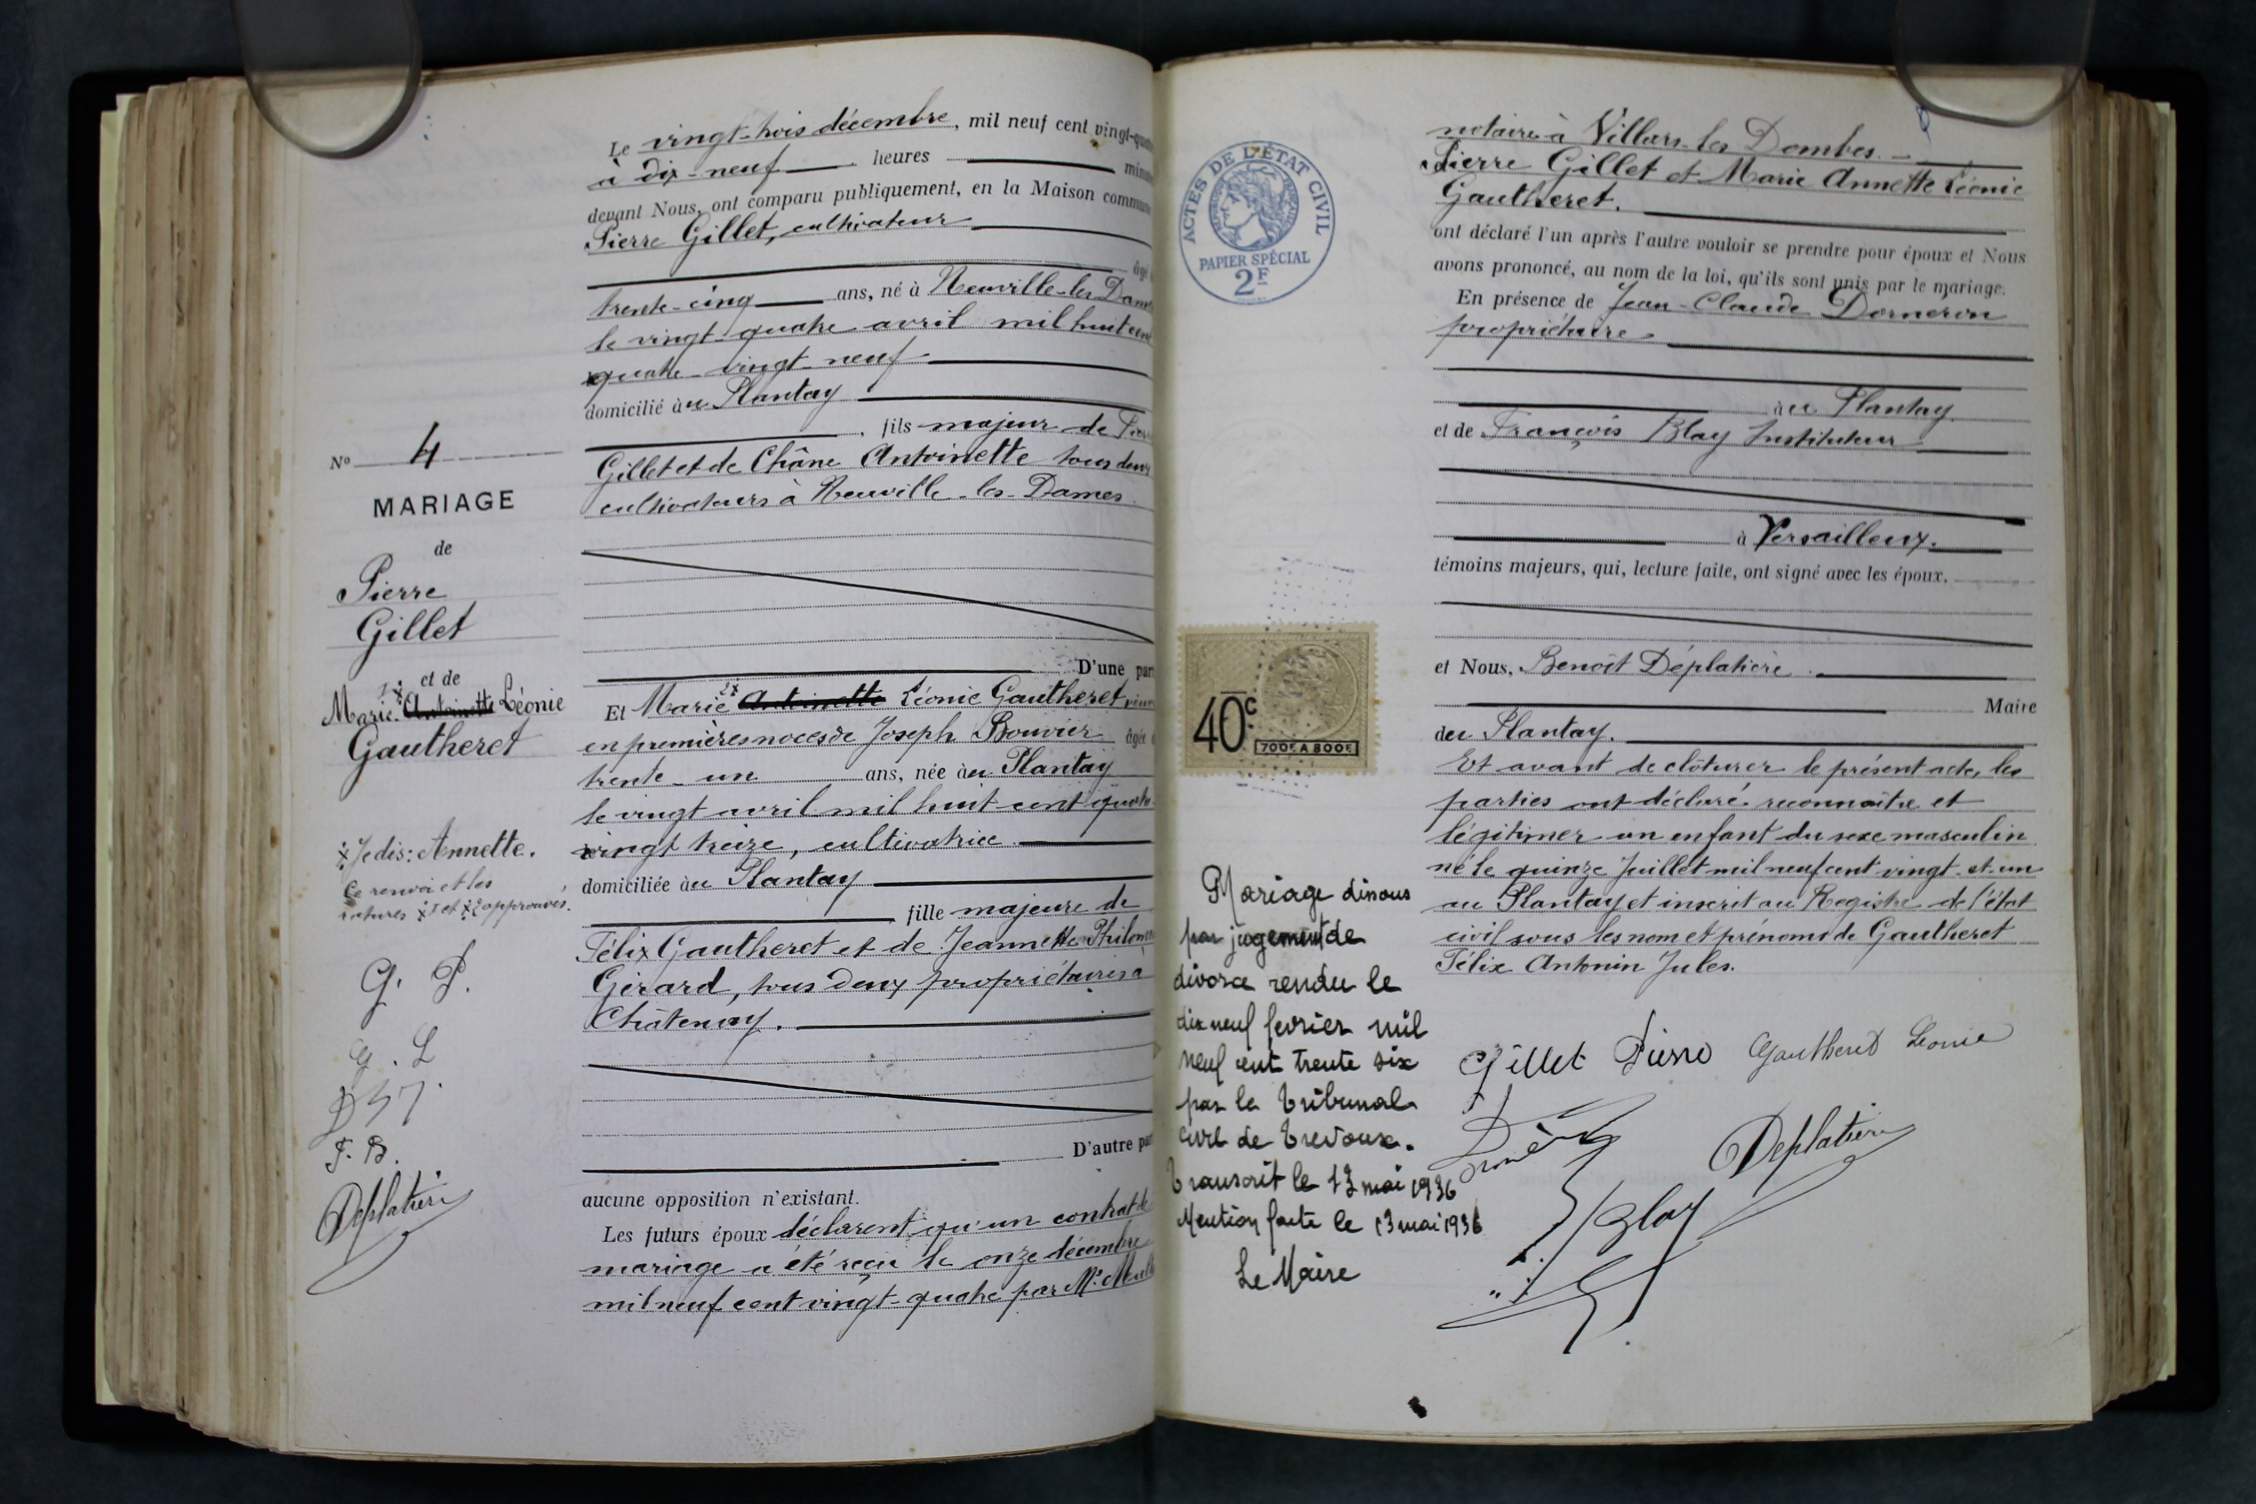 Le vingt-trois décembre, mil neuf cent vingt-quat
à dix-neuf heures minu
devant Nous, ont comparu publiquement, en la Maison commune
Pierre Gillet, cultivateur
âgé
trente-cinq ans, né à Neuville-les-Dames
le vingt-quatre avril mil huit cent
quatre-vingt-neuf
domicilié au Plantay
fils majeur de
Gillet et de Châne Antoinette tous deux
cultivateurs à Neuville-les-Dames
D'une part
Et Marie 2x Antoinette Léonie Gautheret
en premières noces de Joseph Bouvier âgée
trente-un ans, née au Plantay
le vingt avril mil huit cent quatre
vingt treize, cultivatrice
domiciliée au Plantay
fille majeure de
Félix Gautheret et de Jeannette Philom
Gérard, tous deux propriétaires à
Châtenay.
D'autre part
aucune opposition n'existant.
Les futurs époux déclarent qu'un contrat de
mariage a été reçu le onze décembre
mil neuf cent vingt-quatre par Me
No 4
MARIAGE
de
Pierre
Gillet
et de
1x
Marie Antoinette Léonie
Gautheret
x Je dis: Annette.
Ce renvoi et les
ratures x1 et x2 approuvés.
G. P.
G. L
F. B.
Déplatière
ACTES DE L'ÉTAT CIVIL
PAPIER SPÉCIAL
2F
40c
700F A 800F
Mariage dissous
par jugement de
divorce rendu le
dix neuf fevrier mil
neuf cent trente six
par le tribunal
civil de trevoux.
Transcrit le 13 mai 1936
Mention faite le 13 mai 1936
Le Maire
notaire à Villars-les-Dombes.
Pierre Gillet et Marie Annette Léonie
Gautheret.
ont déclaré l'un après l'autre vouloir se prendre pour époux et Nous
avons prononcé, au nom de la loi, qu'ils sont unis par le mariage.
En présence de Jean-Claude Dorneron
propriétaire
au Plantay
et de François Blay Instituteur
à Versailleux.
témoins majeurs, qui, lecture faite, ont signé avec les époux.
et Nous, Benoît Déplatière
Maire
du Plantay.
Et avant de clôturer le présent acte, les
parties ont déclaré reconnaître et
légitimer un enfant du sexe masculin
né le quinze Juillet mil neuf cent vingt-et-un
au Plantay et inscrit au Registre de l'état
civil sous les nom et prénoms de Gautheret
Félix Antonin Jules.
Gillet Pierre Gautheret Léonie
Déplatière
Blay